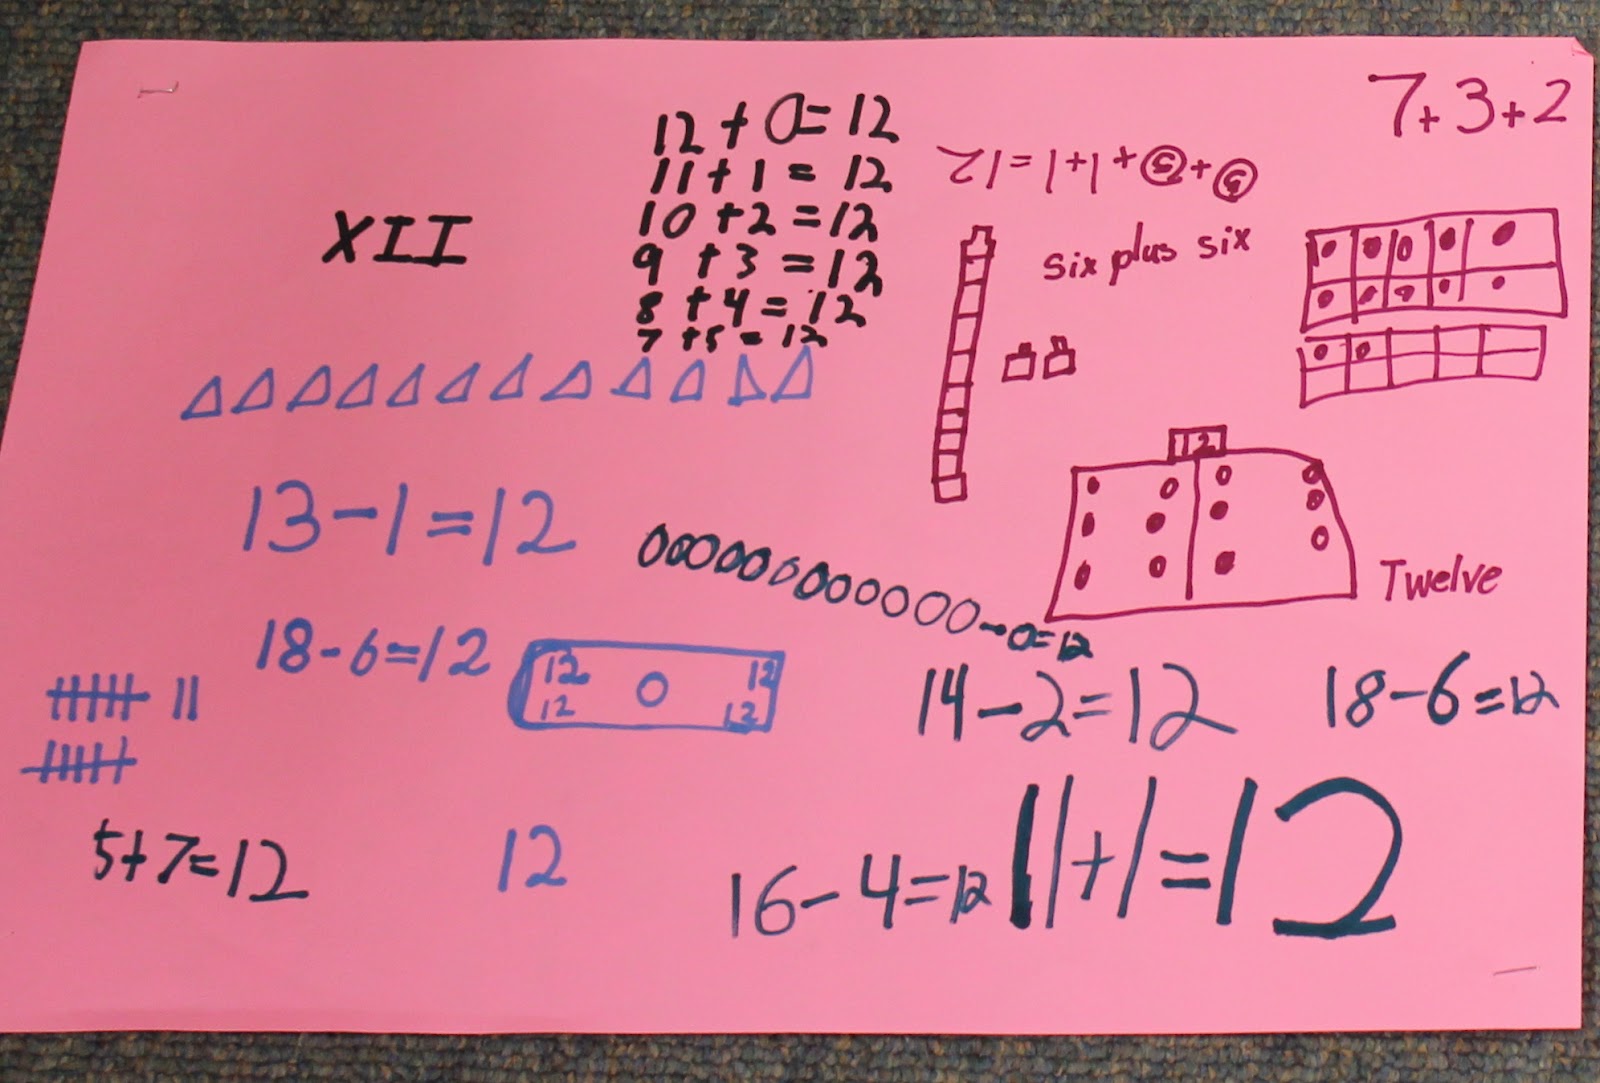 7+3+2
12+0=12
11+1=12
10+2=12
9+3=12
8+4=12
7+5=12
5+5+1+1=12
XII
six plus six
12
13-1=12
Twelve
-0=12
18-6=12
12 12
12 12
14-2=12
18-6=12
5+7=12
12
16-4=12
11+1=12